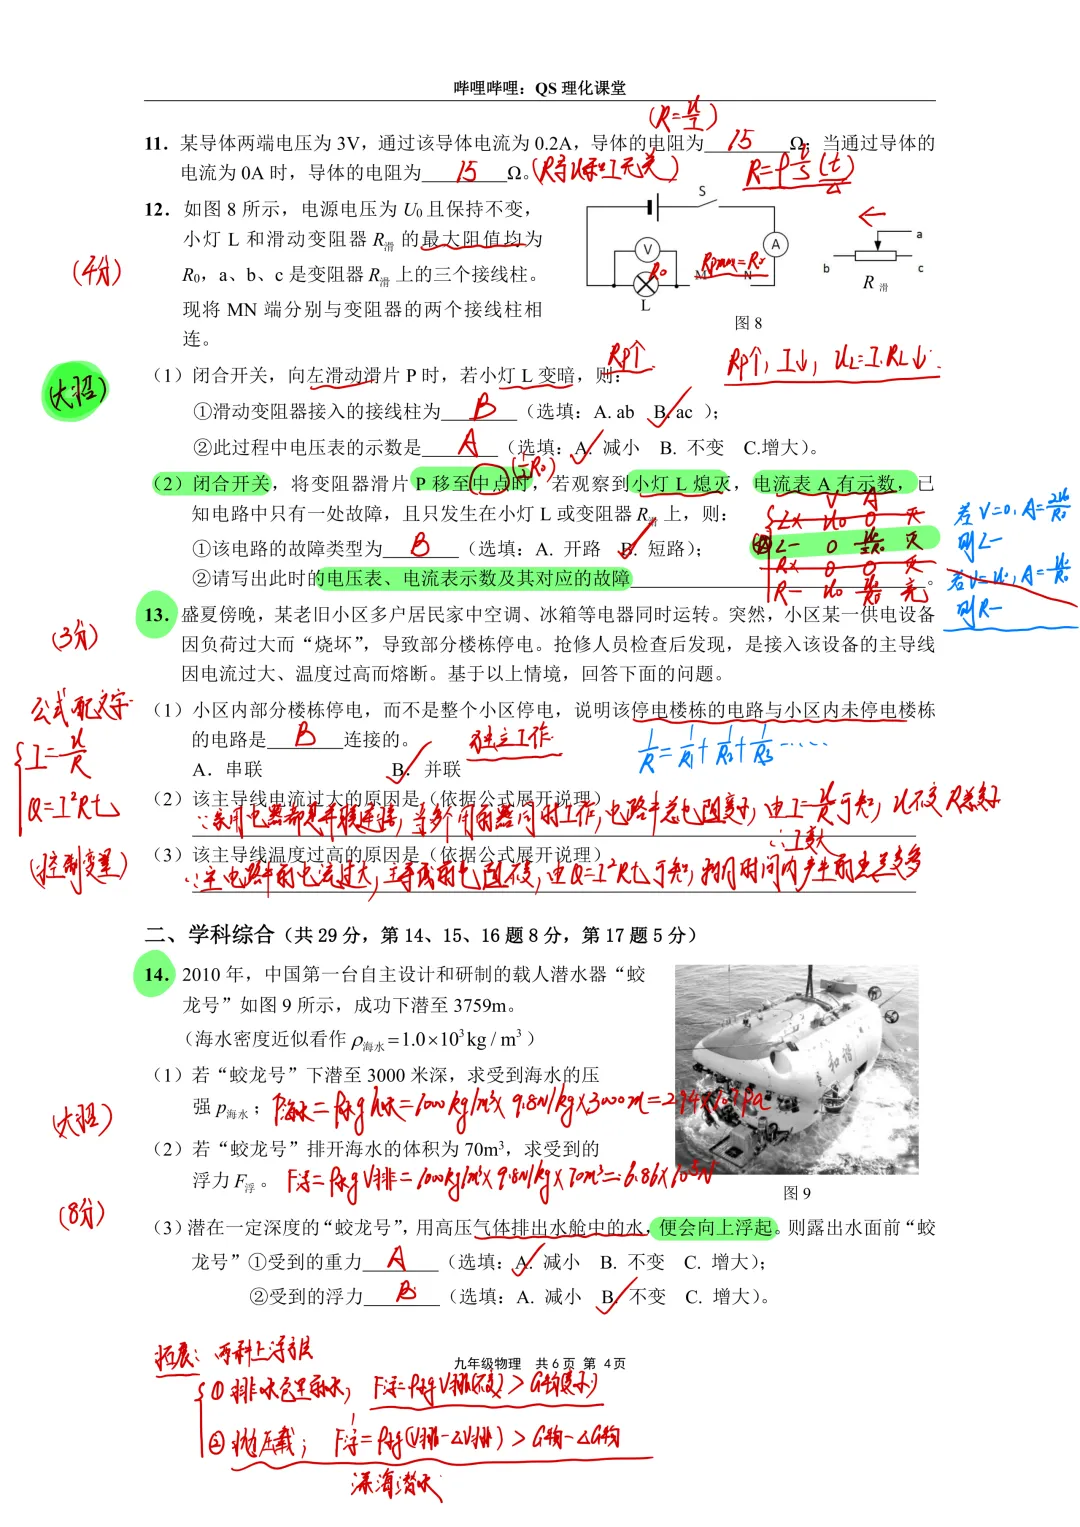 哔哩哔哩：QS 理化课堂
(R=U/I)
11. 某导体两端电压为 3V，通过该导体电流为 0.2A，导体的电阻为 15 Ω；当通过导体的
电流为 0A 时，导体的电阻为 15 Ω。(R与U和I无关) R=ρ L/S (t)
12. 如图 8 所示，电源电压为 U₀ 且保持不变，
小灯 L 和滑动变阻器 R滑 的最大阻值均为
R₀，a、b、c 是变阻器 R滑 上的三个接线柱。
现将 MN 端分别与变阻器的两个接线柱相
连。
(4分)
S
V
A
R₀
M N
Rpmax=R₀
L
a
b
c
R滑
图 8
Rp↑
Rp↑, I↓, U_L=I·R_L↓.
(大招)
（1）闭合开关，向左滑动滑片 P 时，若小灯 L 变暗，则：
①滑动变阻器接入的接线柱为 B （选填：A. ab B. ac ）；
②此过程中电压表的示数是 A （选填：A. 减小 B. 不变 C.增大）。
(½R₀)
（2）闭合开关，将变阻器滑片 P 移至中点时，若观察到小灯 L 熄灭，电流表 A 有示数，已
知电路中只有一处故障，且只发生在小灯 L 或变阻器 R滑 上，则：
①该电路的故障类型为 B （选填：A. 开路 B. 短路）；
②请写出此时的电压表、电流表示数及其对应的故障 。
V A
L× U₀ 0 灭
L— 0 U₀/½R₀ 灭
R× 0 0 灭
R— U₀ U₀/R₀ 亮
若V=0, A=2U₀/R₀
则L—
若V=U₀, A=U₀/R₀
则R—
13. 盛夏傍晚，某老旧小区多户居民家中空调、冰箱等电器同时运转。突然，小区某一供电设备
因负荷过大而“烧坏”，导致部分楼栋停电。抢修人员检查后发现，是接入该设备的主导线
因电流过大、温度过高而熔断。基于以上情境，回答下面的问题。
(3分)
公式配文字
I=U/R
Q=I²Rt
(控制变量)
（1）小区内部分楼栋停电，而不是整个小区停电，说明该停电楼栋的电路与小区内未停电楼栋
的电路是 B 连接的。 独立工作.
1/R=1/R₁+1/R₂+1/R₃……
A．串联 B．并联
（2）该主导线电流过大的原因是（依据公式展开说理）
∵家用电器都是并联连接, 当多个用电器同时工作, 电路中总电阻变小, 由I=U/R可知, U不变 R总变小
∴I变大
（3）该主导线温度过高的原因是（依据公式展开说理）
∵主电路中的电流过大, 主导线的电阻不变, 由Q=I²Rt可知, 相同时间内产生的热量多
二、学科综合（共 29 分，第 14、15、16 题 8 分，第 17 题 5 分）
14. 2010 年，中国第一台自主设计和研制的载人潜水器“蛟
龙号”如图 9 所示，成功下潜至 3759m。
（海水密度近似看作 ρ海水=1.0×10³kg/m³）
（1）若“蛟龙号”下潜至 3000 米深，求受到海水的压
强 p海水； P海水=ρ水g h水=1000kg/m³×9.8N/kg×3000m=2.94×10⁷Pa
(大招)
（2）若“蛟龙号”排开海水的体积为 70m³，求受到的
浮力 F浮。 F浮=ρ水gV排=1000kg/m³×9.8N/kg×70m³=6.86×10⁵N
和谐
图 9
(8分)
（3）潜在一定深度的“蛟龙号”，用高压气体排出水舱中的水，便会向上浮起。则露出水面前“蛟
龙号”①受到的重力 A （选填：A. 减小 B. 不变 C. 增大）；
②受到的浮力 B （选填：A. 减小 B. 不变 C. 增大）。
拓展: 两种上浮方式
九年级物理 共 6 页 第 4页
① 排水仓里的水, F浮=ρ水gV排(不变)>G物(变小)
② 抛压载; F浮=ρ水g(V排-△V排)>G物-△G物
深海潜水